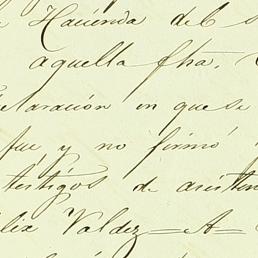 Hacienda del
aquella fha.
claración en que se
fue y no firmó
testigos de asisten
lix Valdez = A =